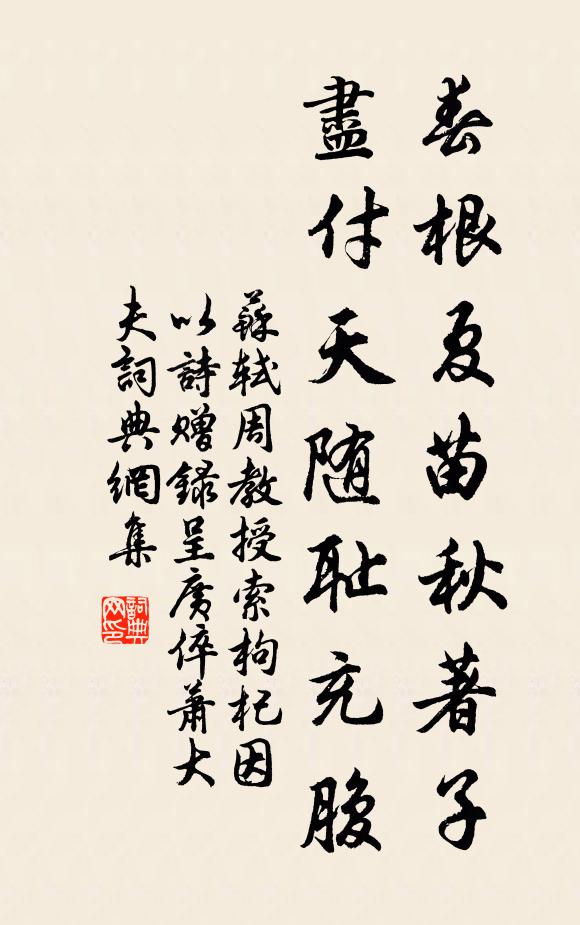 春根夏苗秋著子
盡付天随耻充腹
蘇軾周教授索枸杞因
以詩贈録呈廣倅蕭大
夫詞典網集
詞典
网印